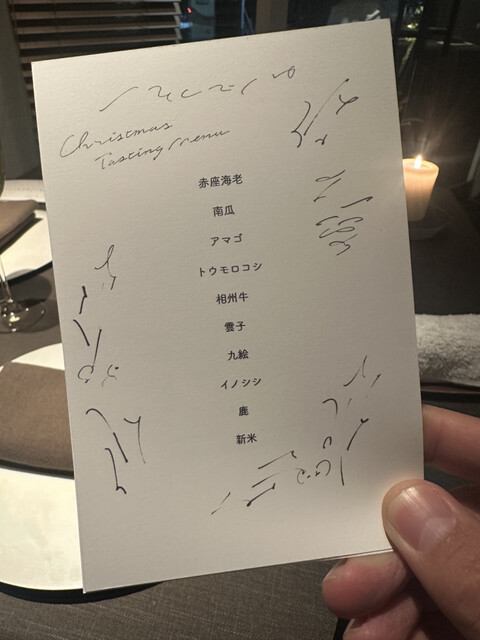 Christmas
Tasting Menu
赤座海老
南瓜
アマゴ
トウモロコシ
相州牛
雲子
九絵
イノシシ
鹿
新米